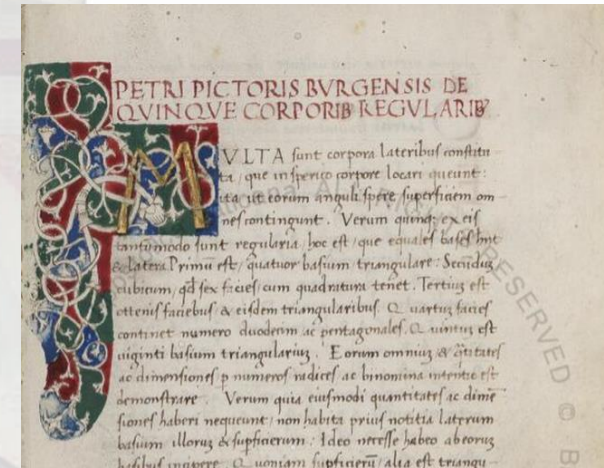 PETRI PICTORIS BVRGENSIS DE
QVINQVE CORPORIB REGVLARIB
MVLTA sunt corpora lateribus constitu
ta, que in sperico corpore locari queunt:
ita ut eorum anguli spere superficiem om
nes contingunt. Verum quinq; ex eis
tantumodo sunt regularia, hoc est, que equales bases hñt
& latera. Primũ est, quatuor basium triangulare: Secũduz
cubicum, qd sex facies cum quadratura tenet. Tertiuz est
ottenis faciebus & eisdem triangularibus. Quartuz facies
continet numero duodenim ac pentagonales. Quintuz est
uiginti basium triangulariuz. Eorum omniuz & q̃titates
ac dimensiones p numeros radices ac binomina intentie est
demonstrare. Verum quia eiusmodi quantitates ac dimẽ
siones haberi nequeunt, non habita prius notitia laterum
basium illoruz & supficierum: Ideo necesse habeo ab eoruz
basibus incipere. Quoniam supficierũ, alia est triangu-
RESERVED ©